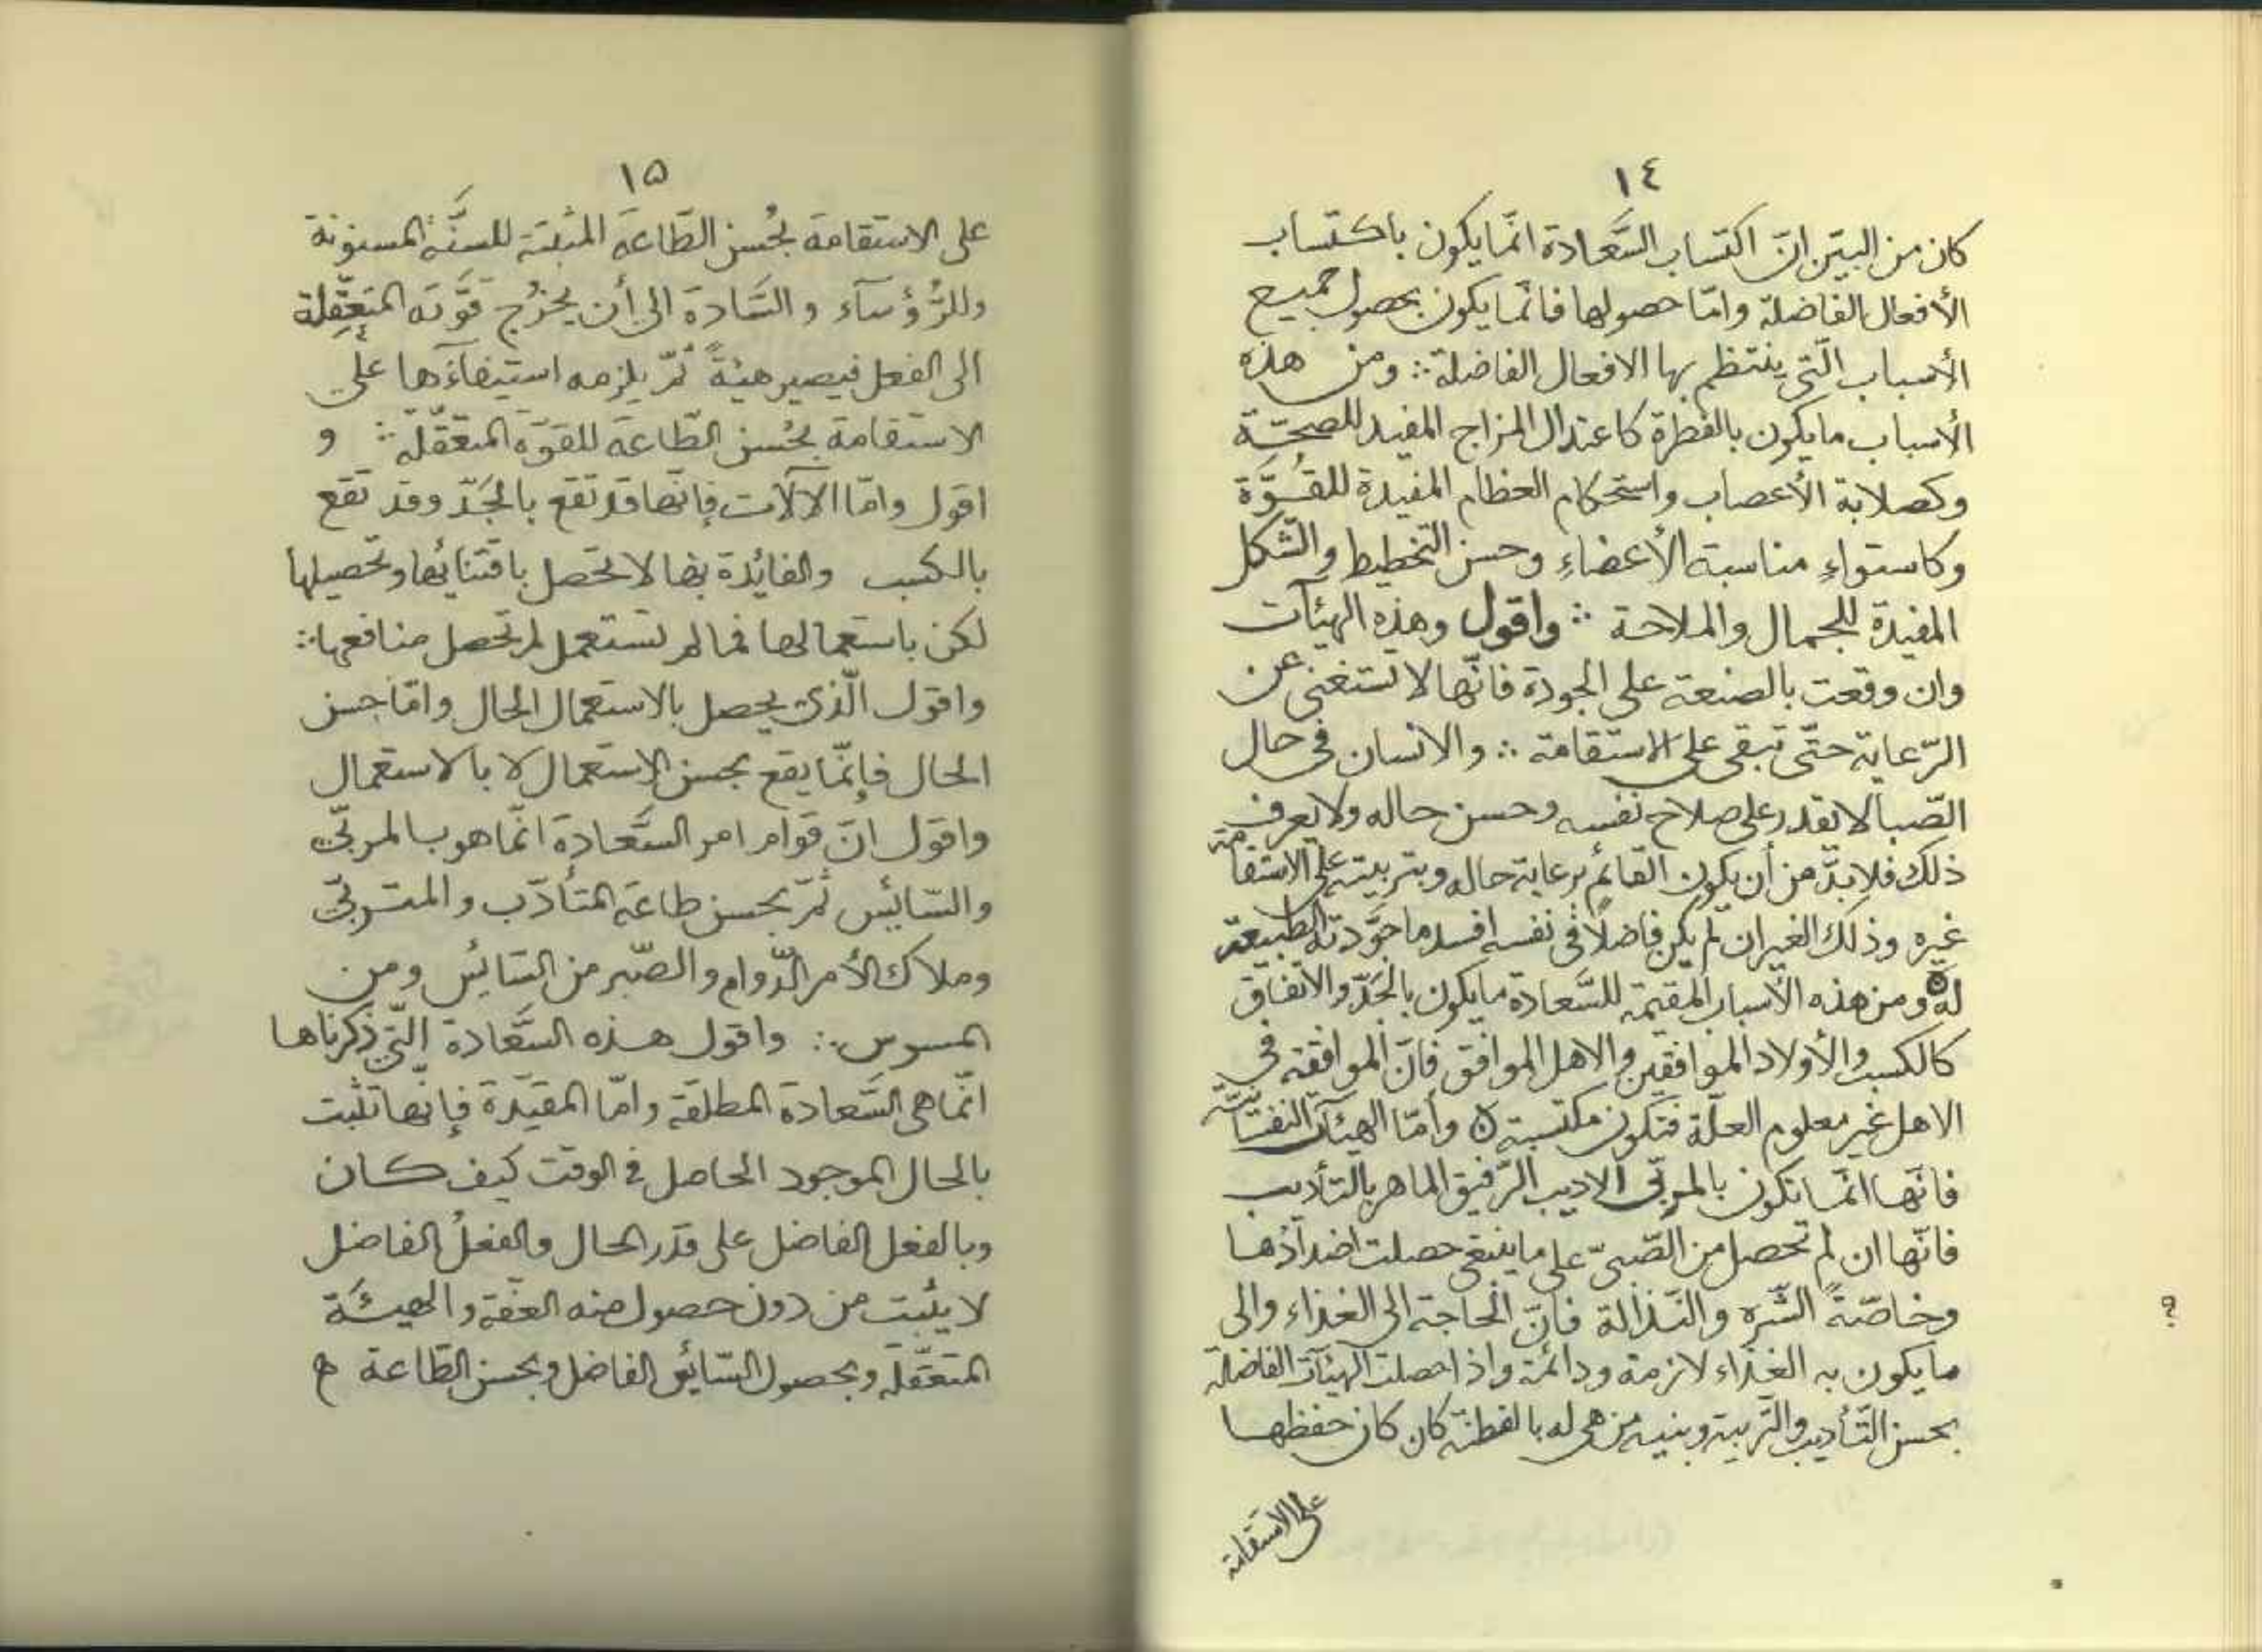 ١٤
كان من البيّن انّ اكتساب السَّعادة انّما يكون باكتساب
الأفعال الفاضلة وامّا حصولها فانّما يكون بحصول جميع
الأسباب الّتي ينتظم بها الافعال الفاضلة ∴ ومن هذه
الأسباب ما يكون بالفطرة كاعتدال المزاج المفيد للصحّة
وكصلابة الأعصاب واستحكام العظام المفيدة للقُوَّة
وكاستواءِ مناسبة الأعضاءِ وحسن التّخطيط والشّكل
المفيدة للجمال والملاحة ∴ واقول وهذه الهيئآت
وان وقعت بالصنعة على الجودة فانّها لا تستغنى عن
الرّعاية حتّى تبقى على الاستقامة ∴ والانسان فى حال
الصّبا لا يقدر على صلاح نفسه وحسن حاله ولا يعرف
ذلك فلا بدّ من أن يكون القائم برعاية حاله وبتربيته على الاستقامة
غيره وذلك الغير ان لم يكن فاضلاً فى نفسه افسد ما جوّدته الطبيعة
له ۞ ومن هذه الأسباب المقيمة للسَّعادة ما يكون بالجَدّ والاتفاق
كالكسب والأولاد الموافقين والاهل الموافق فانّ الموافقة فى
الاهل غير معلوم العلّة فتكون مكتسبة ۞ وأمّا الهيئآت النفسيّة
فانّها انّما تكون بالمربّى الاديب الرّفيق الماهر بالتأديب
فانّها ان لم تحصل من الصّبىّ على ما ينبغى حصلت اضدادها
وخاصّةً الشَّرِه والنّذالة فانّ الحاجة الى الغذاء والى
ما يكون به الغذاء لازمة ودائمة واذا حصلت الهيئآت الفاضلة
بحسن التّأديب والتّربية وبنيه من هى له بالفطنة كان كان حفظها
على الاستقامة
١٥
على الاستقامة بحُسن الطّاعة المثبتة للسنّة المسنونة
وللرُّؤسآء والسَّادة الى أن يخرُج قوّته المتعقّلة
الى الفعل فيصير هيئةً ثمّ يلزمه استيفآءها على
الاستقامة بحُسن الطّاعة للقوّة المتعقّلة ∴ و
اقول وامّا الآلات فإنّها قد تقع بالجَدّ وقد تقع
بالكسب والفائدة بها لا تحصل باقتنائها وتحصيلها
لكن باستعمالها فما لم تستعمل لم تحصل منافعها ∴
واقول الّذى يحصل بالاستعمال الحال وامّا حسن
الحال فإنّما يقع بحسن الإستعمال لا بالاستعمال
واقول انّ قوام امر السَّعادة انّما هو بالمربّى
والسّايئس ثمّ بحسن طاعة المتأدّب والمتربّى
وملاك الأمر الدّوام والصّبر من السّائس ومن
المسوس ∴ واقول هذه السَّعادة الّتى ذكرناها
انّما هى السَّعادة المطلقة وامّا المقيّدة فإنّها تثبت
بالحال الموجود الحاصل فى الوقت كيف كان
وبالفعل الفاضل على قدر الحال والفعلُ الفاضل
لا يثبت من دون حصول منه العفّة والهيئَة
المتعقّلة وبحصول السّايئس الفاضل وبحسن الطّاعة